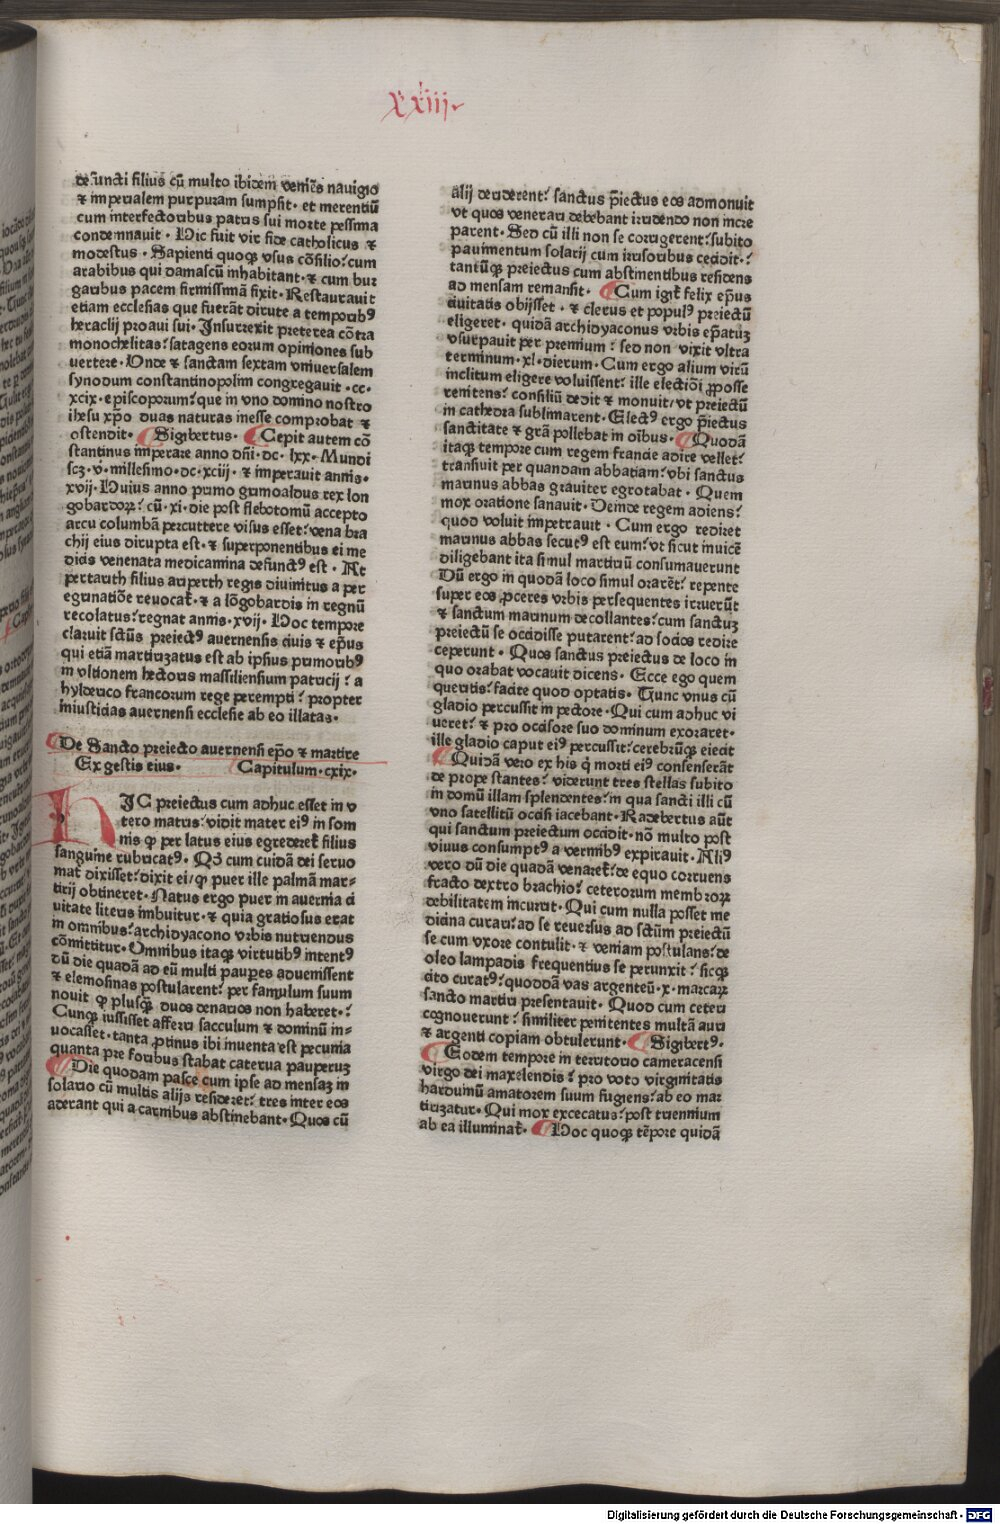 xxiij
defuncti filius cū multo ibidem veniēs nauigio
⁊ imperialem purpuram sumpsit· et merentiū
cum interfectoribus patris sui morte pessima
condemnauit · Hic fuit vir fide catholicus ⁊
modestus · Sapienti quoqꝫ vsus cōsilio? cum
arabibus qui damascū inhabitant· ⁊ cum bur
garibus pacem firmissimā fixit · Restaurauit
etiam ecclesias que fuerāt dirute a temporibꝰ
heraclij proaui sui · Insurrexit preterea cōtra
monochelitas? satagens eorum opiniones sub
uertere · Vnde ⁊ sanctam sextam vniuersalem
synodum constantinopolim congregauit ·cc·
xcix· episcoporum? que in vno domino nostro
ihesu xp̄o duas naturas inesse comprobat ⁊
ostendit· Sigibertus· Cepit autem cō
stantinus imperare anno dn̄i ·dc· lxx· Mundi
scꝫ ·v· millesimo ·dc· xciij · ⁊ imperauit annis·
xvij· Huius anno primo grimoaldus rex lon
gobardoꝝ? cū ·xi· die post flebotomū accepto
arcu columbā percuttere visus esset? vena bra
chij eius dirupta est· ⁊ superponentibus ei me
dicis venenata medicamina defunctꝰ est · At
pertarith filius ariperth regis diuinitus a per
egrinatiōe reuocat̄· ⁊ a lōgobardis in regnū
recolatus? regnat annis ·xvij · Hoc tempore
claruit sctūs preiectꝰ auernensis ciuis ⁊ ep̄us
qui etiā martirizatus est ab ipsius primoribꝰ
in vltionem hectoris massiliensium patricij ? a
hylderico francorum rege perempti? propter
iniusticias auernensi ecclesie ab eo illatas ·
De Sancto preiecto auernensi ep̄o ⁊ martire
Ex gestis eius· Capitulum ·cxix·
HIC preiectus cum adhuc esset in v
tero matris? vidit mater eiꝰ in som
nis ꝙ per latus eius egrederet̄ filius
sanguine rubricatꝰ · Qꝫ cum cuidā dei seruo
mat̄ dixisset? dixit ei/ ꝙ puer ille palmā mar-
tirij obtineret · Natus ergo puer in auernia ci
uitate literis imbuitur· ⁊ quia gratiosus erat
in omnibus? archidyacono vrbis nutriendus
cōmittitur · Omnibus itaqꝫ virtutibꝰ intentꝰ
dū die quadā ad eū multi paupes aduenissent
⁊ elemosinas postularent? per famulum suum
nouit ꝙ plusqꝫ duos denarios non haberet ·?
Cunqꝫ iussisset afferri sacculum ⁊ dominū in-
uocasset · tanta ꝓtinus ibi inuenta est pecunia
quanta pre foribus stabat caterua pauperuꝫ
Die quodam pasce cum ipse ad mensaꝫ in
solario cū multis alijs resideret? tres inter eos
aderant qui a carnibus abstinebant· Quos cū
alij deriderent? sanctus p̄iectus eos admonuit
vt quos venerari debebant irridendo non incre
parent · Sed cū illi non se corrigerent? subito
pauimentum solarij cum irrisoribus cecidit ·?
tantūqꝫ preiectus cum abstinentibus residens
ad mensam remansit· Cum igit̄ felix ep̄us
ciuitatis obijsset · ⁊ clerus et populꝰ preiectū
eligeret · quidā archidyaconus vrbis ep̄atuꝫ
vsurpauit per premium ? sed non vixit vltra
terminum ·xl· dierum · Cum ergo alium virū
inclitum eligere voluissent? ille electiōi ꝓ posse
renitens? consiliū dedit ⁊ monuit/ vt preiectū
in cathedra sublimarent · Electꝰ ergo p̄iectus
sanctitate ⁊ grā pollebat in oībus · Quodā
itaqꝫ tempore cum regem francie adire vellet?
transiuit per quandam abbatiam? vbi sanctus
marinus abbas grauiter egrotabat · Quem
mox oratione sanauit · Deinde regem adiens?
quod voluit impetrauit · Cum ergo rediret
marinus abbas secutꝰ est eum? vt sicut inuicē
diligebant ita simul martiriū consumauerunt
Dū ergo in quodā loco simul orarēt? repente
super eos ꝓceres vrbis persequentes irruerūt
⁊ sanctum marinum decollantes? cum sanctuꝫ
preiectū se occidisse putarent? ad socios redire
ceperunt · Quos sanctus preiectus de loco in
quo orabat vocauit dicens · Ecce ego quem
queritis? facite quod optatis · Tunc vnus cū
gladio percussit in pectore · Qui cum adhuc vi
ueret? ⁊ pro occisore suo dominum exoraret·
ille gladio caput eiꝰ percussit? cerebrūqꝫ eiecit
Quidā vero ex his q̄ morti eiꝰ consenserāt
de prope stantes? viderunt tres stellas subito
in domū illam splendentes? in qua sancti illi cū
vno satellitū occisi iacebant · Radebertus aūt
qui sanctum preiectum occidit · nō multo post
viuus consumptꝰ a vermibꝰ expirauit · Aliꝰ
vero dū die quadā venaret̄? de equo corruens
fracto dextro brachio? ceterorum membroꝝ
debilitatem incurrit · Qui cum nulla posset me
dicina curari? ad se reuersus ad sctūm preiectū
se cum vxore contulit · ⁊ veniam postulans? de
oleo lampadis frequentius se perunxit? sicqꝫ
cito curatꝰ? quoddā vas argenteū ·x· marcaꝝ
sancto martiri presentauit · Quod cum ceteri
cognouerunt? similiter penitentes multā auri
⁊ argenti copiam obtulerunt· Sigibertꝰ·
Eodem tempore in territorio cameracensi
virgo dei maxelendis? pro voto virginitatis
harduinū amatorem suum fugiens? ab eo mar
tirizatur · Qui mox excecatus? post triennium
ab ea illuminat̄· Hoc quoqꝫ tēpore quidā
Digitalisierung gefördert durch die Deutsche Forschungsgemeinschaft - DFG